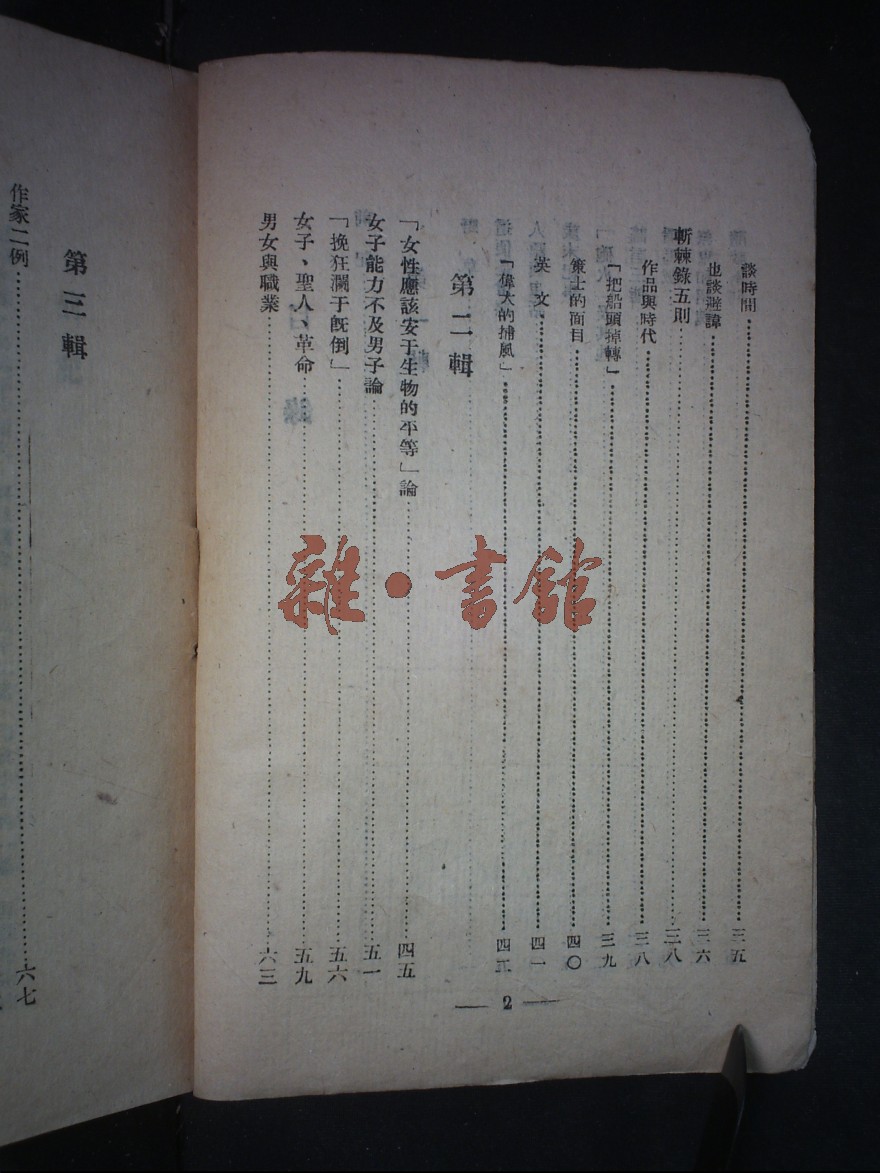 談時間……三五
也談避諱……三六
斬棘錄五則……三八
作品與時代……三八
「把船頭掉轉」……三九
策士的面目……四〇
英文……四一
「偉大的捕風」……四二
第二輯
「女性應該安于生物的平等」論……四五
女子能力不及男子論……五一
「挽狂瀾于旣倒」……五六
女子、聖人、革命……五九
男女與職業……六三
2
第三輯
作家二例……六七
雜·書館